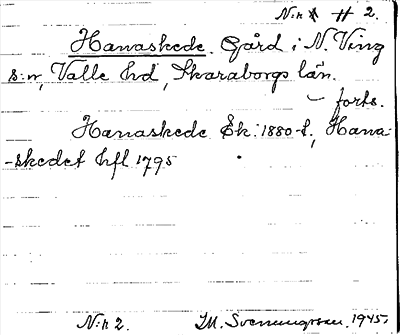 N:r 2.
Hanaskede. Gård i N. Ving
s:n, Valle hd, Skaraborgs län.
– forts.
Hanaskede Ek: 1880-t., Hana-
-skedet hfl 1795
N:r 2. M. Svenungsson 1945.